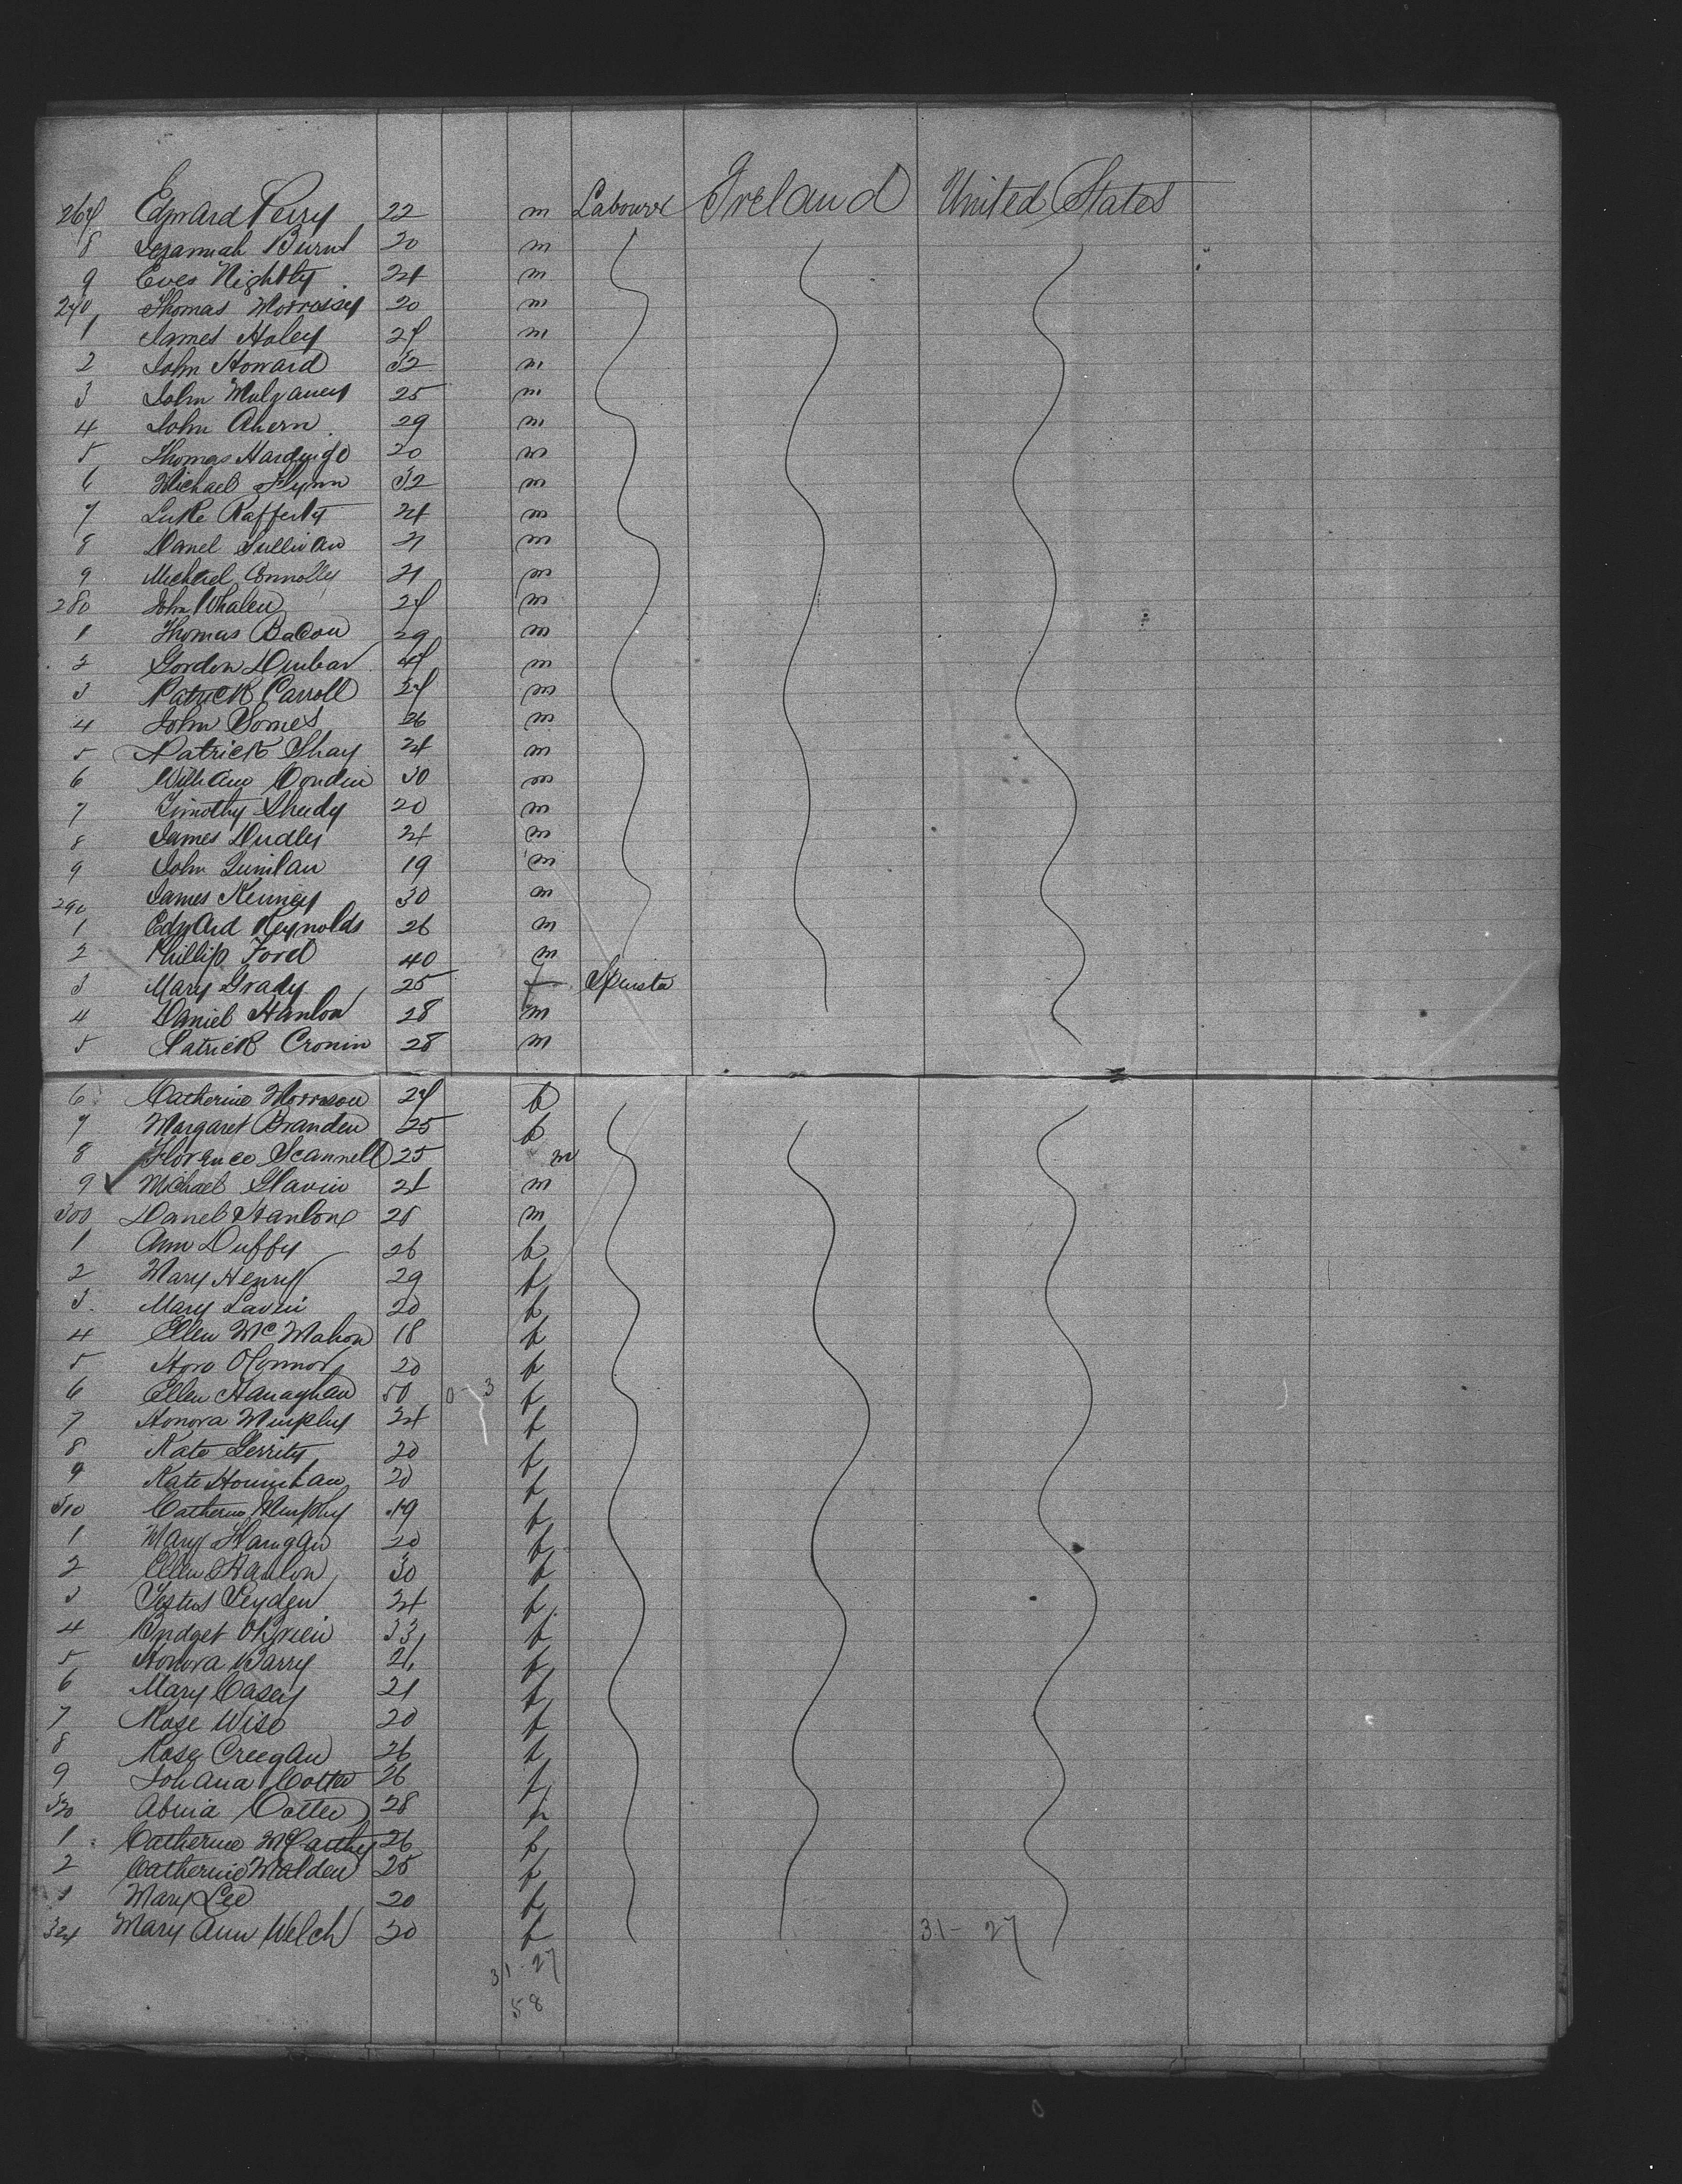 267 Edward Perry 22 m Labourer Ireland United States
8 Jeramiah Burns 20 m
9 24 m
270 Thomas Morrissey 20 m
1 James Haley 27 m
2 John Howard 32 m
3 John Mulqaney 25 m
4 John Ahern 29 m
5 Thomas 20 m
6 Michael Flynn 32 m
7 Luke Rafferty 24 m
8 Danel Sullivan 21 m
9 Michael Connolly 21 m
280 John Whalen 27 m
1 Thomas Bacon 29 m
2 Gordon Dunbar 47 m
3 Patrick Carroll 27 m
4 John Somes 26 m
5 Patrick Shay 24 m
6 William Condin 30 m
7 Timothy Sheedy 20 m
8 James Dudley 24 m
9 John 19 m
290 James Kenney 30 m
1 Edward Reynolds 26 m
2 Phillip Ford 40 m
3 Mary Grady 25 f Spinster
4 Daniel Hanlon 28 m
5 Patrick Cronin 28 m
6 Catherine Morrison 27 f
7 Margaret Branden 25 f
8 Florence Scannell 25 m
9 Michael Slavin 21 m
300 Danel Hanlon 28 m
1 Ann Duffy 26 f
2 Mary Henry 29 f
3 Mary Lavin 20 f
4 Ellen McMahon 18 f
5 Hora OConnor 20 f
6 Ellen Hanaghan 50 0-3 f
7 Honora Murphy 24 f
8 Kate Gerrity 20 f
9 Kate Hounihan 20 f
310 Catherine Murphy 19 f
1 Mary Hanigan 20 f
2 Ellen Hanlon 30 f
3 Festus Leyden 24 f
4 Bridget OBrien 33 f
5 Honora Barry 21 f
6 Mary Casey 21 f
7 Rose Wise 20 f
8 Rose Creegan 26 f
9 Johana Cotter 26 f
320 Abina Cotter 28 f
1 Catherine McCarthy 26 f
2 Catherine Walden 25 f
3 Mary Lee 20 f
324 Mary Ann Welch 30 f 31-27
31-27
58